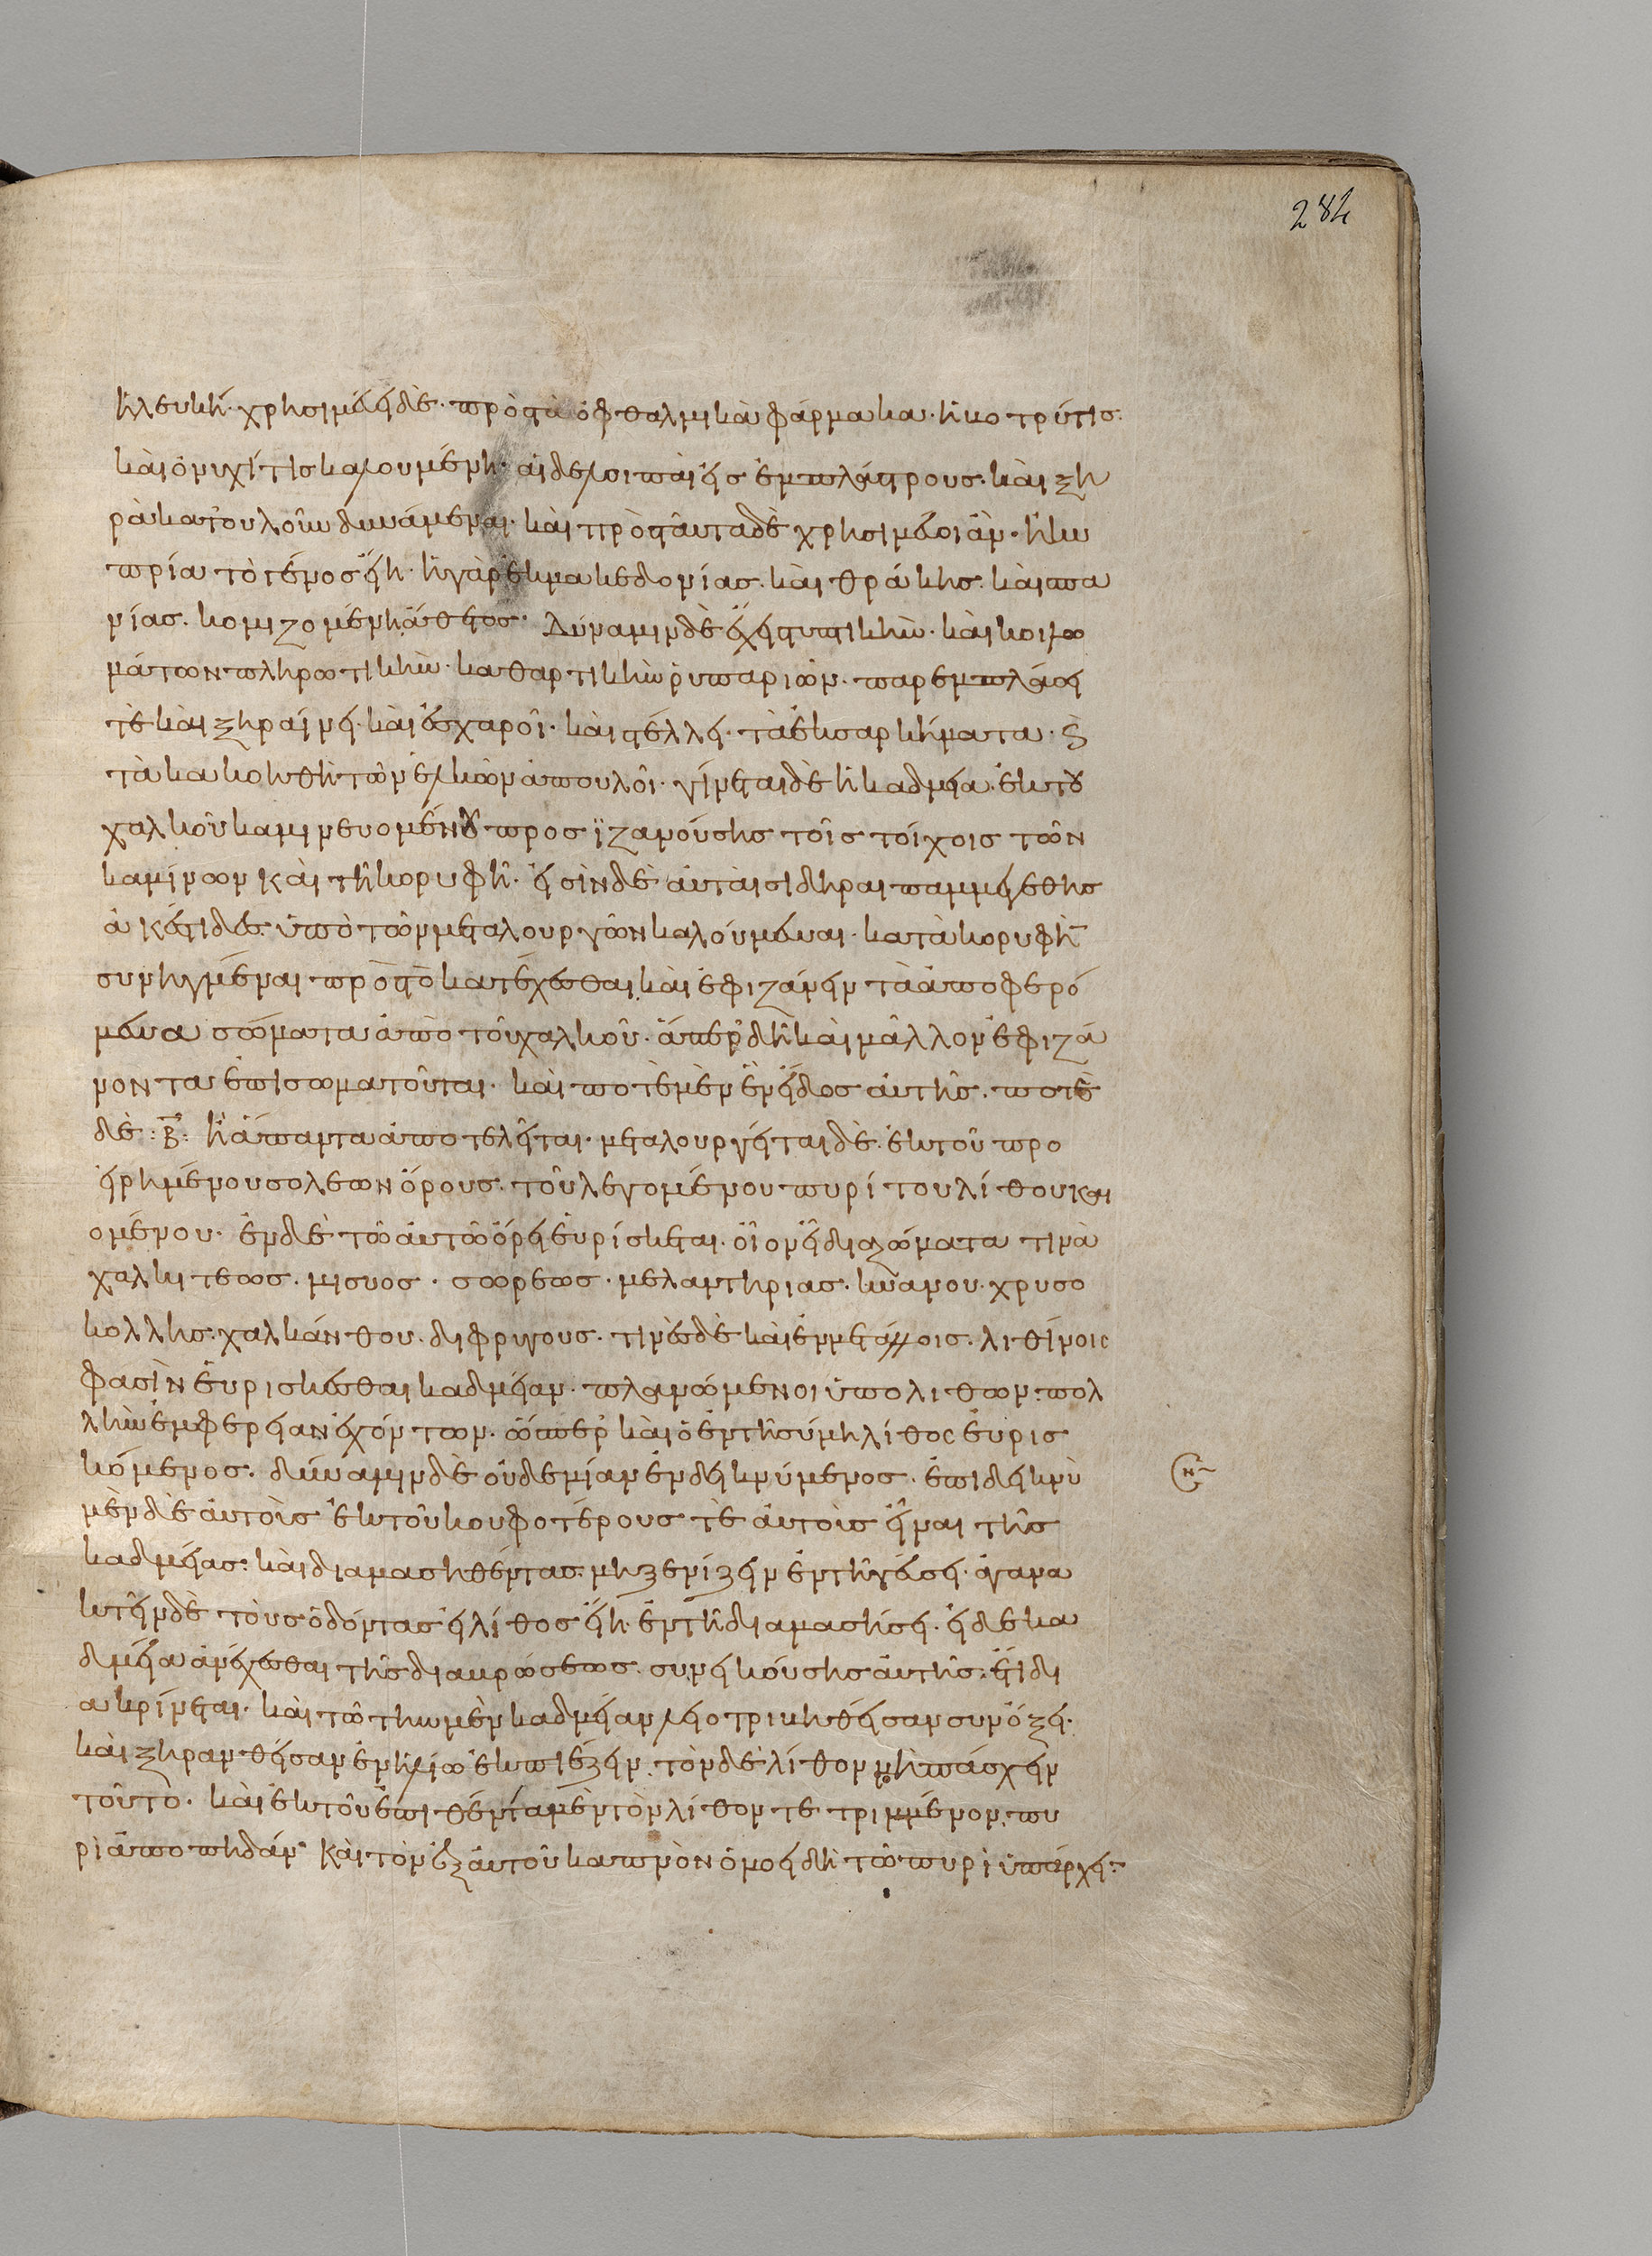 284
ἡ λευκή· χρησιμεύει δὲ· πρὸς τὰ ὀφθαλμικὰ φάρμακα· ἡ βοτρύτις·
καὶ ὀνυχίτις καλουμένη· αἱ δὲ λοιπαὶ εἰς ἐμπλάστρους· καὶ ξη
ρὰ κατουλοῦν δυνάμεναι· καὶ πρὸς ταῦτα δὲ χρησιμεύοι ἂν· ἡ κυ
πρία τὸ γένος εἴη· ἡ γὰρ ἐκ μακεδονίας· καὶ θράκης· καὶ σπα
νίας· κομιζομένη ἄθετος· Δύναμιν δὲ ἔχει στυπτικὴν· καὶ κοιλω
μάτων πληρωτικὴν· καθαρτικὴν ῥυπαριῶν· παρεμπλάσσει
τὲ καὶ ξηραίνει· καὶ ἐσχαροῖ· καὶ στέλλει· τὰ ἐκσαρκήματα· καὶ
τὰ κακοήθη τῶν ἑλκῶν ἀπουλοῖ· γίνεται δὲ ἡ καδμεία· ἐκ τοῦ
χαλκοῦ καμινευομένου προσϊζανούσης τοῖς τοίχοις τῶν
καμίνων καὶ τῆ κορυφῆ· εἰσὶν δὲ αὐταὶ σιδηραι παμμεγέθης
ἀκέστιδες· ὑπὸ τῶν μεταλουργῶν καλούμεναι· κατὰ κορυφὴν
συνηγμέναι πρὸς τὸ κατέχεσθαι καὶ ἐφιζάνειν τὰ ἀποφερό
μενα σώματα ἀπὸ τοῦ χαλκοῦ· ἅπερ δὴ καὶ μᾶλλον ἐφιζά
νοντα ἐπισωματοῦται· καὶ ποτὲ μὲν ἓν εἶδος αὐτῆς· ποτὲ
δὲ :β̅: ἢ ἅπαντα ἀποτελεῖται· μεταλουργεῖται δὲ· ἐκ τοῦ προ
ειρημένου σολεων ὄρους· τοῦ λεγομένου πυρίτου λίθου και
ομένου· ἐν δὲ τῶ αὐτῶ ὄρει εὑρίσκεται· οἱονεὶ διαζώματα τινὰ
χαλκιτεως· μισυος· σωρεως· μελαντηριας· κυάνου· χρυσο
κολλης· χαλκάνθου· διφρυγους· τινὲς δὲ καὶ ἐν μετάλλοις· λιθίνοις
φασὶν εὑρισκέσθαι καδμείαν· πλανώμενοι ὑπο λιθων· πολ
λὴν ἐμφερειαν ἐχόντων· ὥσπερ καὶ ὁ ἐν τῆ κύμη λίθος εὑρισ
κόμενος· δύναμιν δὲ οὐδεμίαν ἐνδεικνύμενος· ἐπιδεικνὺ
μεν δὲ αὐτοὺς ἐκ τοῦ κουφοτέρους τὲ αὐτοὺς εἶναι τῆς
καδμείας· καὶ διαμασηθέντας· μη ξενίζειν ἐν τῆ γεύσει· ἀγανα
κτεῖν δὲ τοὺς ὀδόντας εἰ λίθος εἴη· ἐν τῆ διαμασήσει· ἡ δε κα
δμεία ἀνέχεσθαι τῆς διακρώσεως· συνεικούσης αὐτῆς· ἔτι δι
ακρίνεται· καὶ τῶ τὴν μὲν καδμείαν λειοτριβηθεῖσαν συν ὄξει·
καὶ ξηρανθεῖσαν ἐν ἡλίω ἐκπιέζειν· τὸν δὲ λίθον μὴ πάσχειν
τοῦτο· καὶ ἐκ τοῦ ἐπιθέντα μὲν τὸν λίθον τετριμμένον· πυ
ρὶ ἀποπηδάν· καὶ τὸν ἐξ αὐτοῦ καπνὸν ὁμοειδὴ τῶ πυρὶ ὑπάρχει·